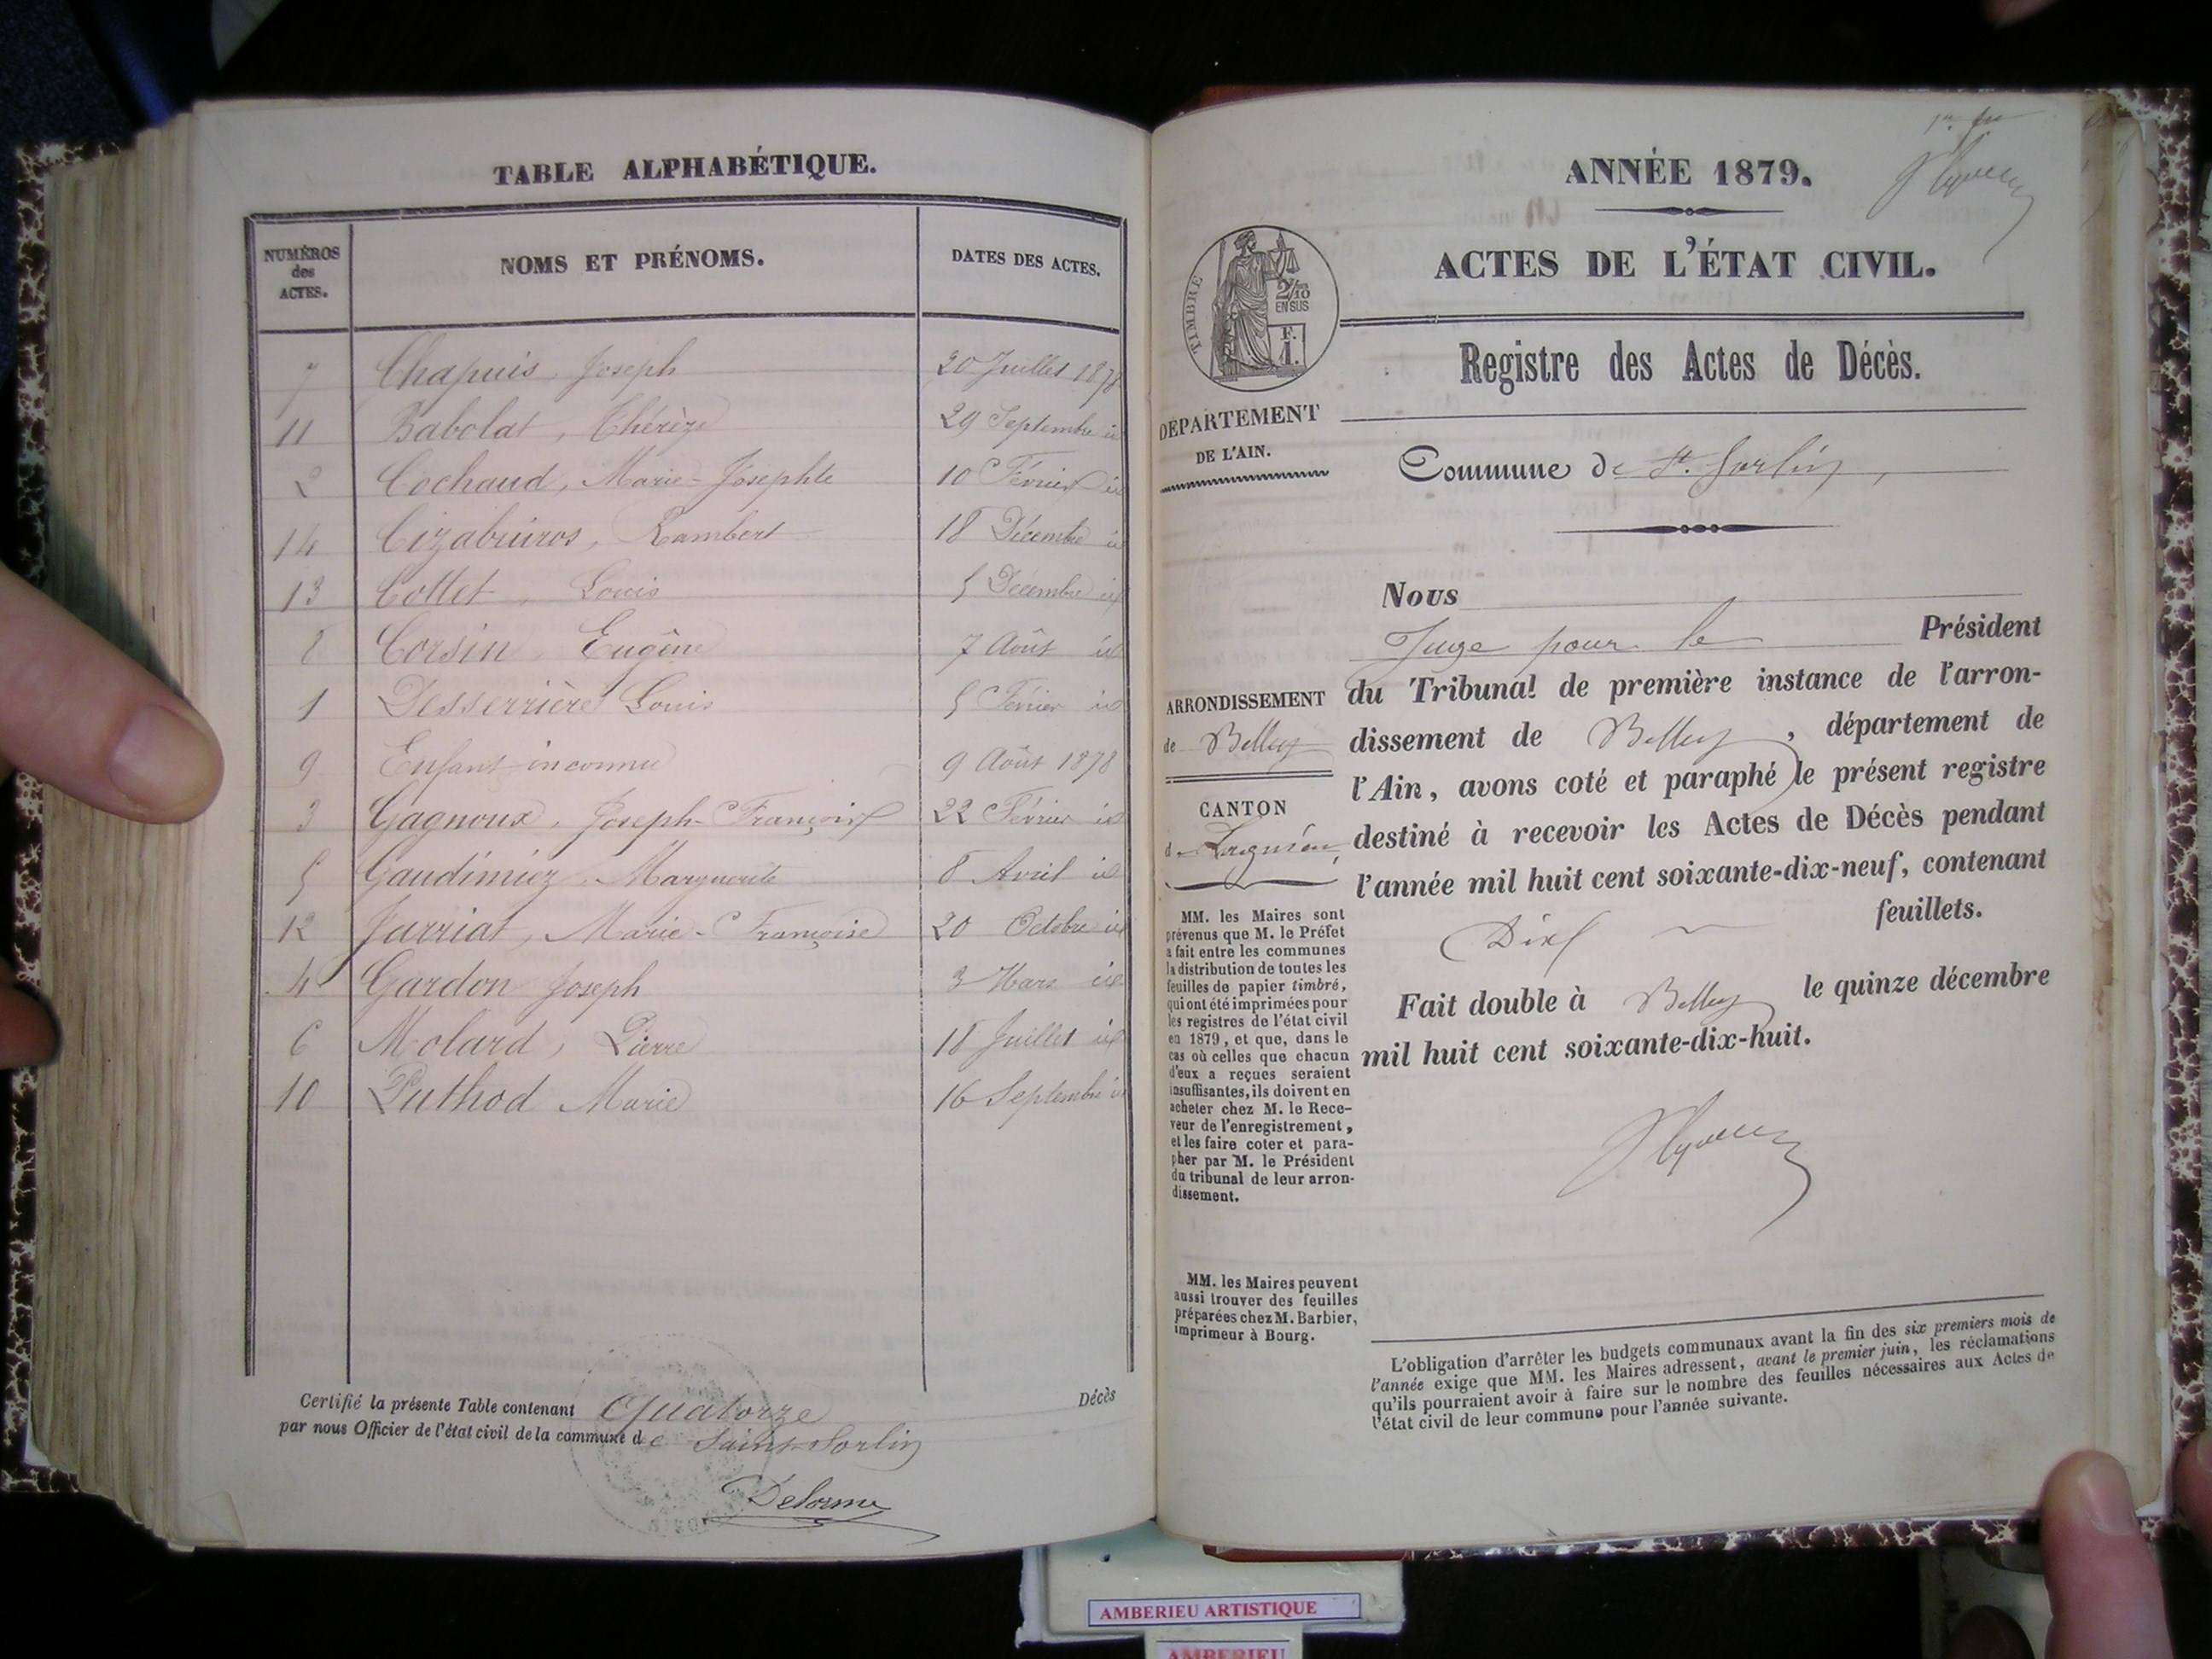 TABLE ALPHABÉTIQUE.
NUMÉROS des ACTES. NOMS ET PRÉNOMS. DATES DES ACTES.
7 Chapuis, Joseph 20 Juillet 1878
11 Babolat, Thérèze 29 Septembre id
2 Cochaud, Marie-Josephte 10 Février id
14 Rambert 18 Décembre id
13 Collet, Louis 5 Décembre id
8 Corsin, Eugène 7 Août id
1 Desserrière Louis 5 Février id
9 Enfant inconnu 9 Août 1878
3 Gagnoux, Joseph-François 22 Février id
5 Marguerite 8 Avril id
12 Jarriat, Marie-Françoise 20 Octobre id
4 Gardon Joseph 3 Mars id
6 Molard, Pierre 18 Juillet id
10 Puthod Marie 16 Septembre id
Certifié la présente Table contenant Quatorze Décès
par nous Officier de l'état civil de la commune de Saint-Sorlin
Delorme
ANNÉE 1879.
ACTES DE L'ÉTAT CIVIL.
TIMBRE
2/10 EN SUS
F. 1.
Registre des Actes de Décès.
DÉPARTEMENT
DE L'AIN.
Commune de St. Sorlin,
Nous
Juge pour le Président
du Tribunal de première instance de l'arron-
dissement de Belley, département de
l'Ain, avons coté et paraphé le présent registre
destiné à recevoir les Actes de Décès pendant
l'année mil huit cent soixante-dix-neuf, contenant
Dix feuillets.
Fait double à Belley le quinze décembre
mil huit cent soixante-dix-huit.
ARRONDISSEMENT
de Belley
CANTON
de Lagnieu,
MM. les Maires sont
prévenus que M. le Préfet
a fait entre les communes
la distribution de toutes les
feuilles de papier timbré,
qui ont été imprimées pour
les registres de l'état civil
en 1879, et que, dans le
cas où celles que chacun
d'eux a reçues seraient
insuffisantes, ils doivent en
acheter chez M. le Rece-
veur de l'enregistrement,
et les faire coter et para-
pher par M. le Président
du tribunal de leur arron-
dissement.
MM. les Maires peuvent
aussi trouver des feuilles
préparées chez M. Barbier,
imprimeur à Bourg.
L'obligation d'arrêter les budgets communaux avant la fin des six premiers mois de
l'année exige que MM. les Maires adressent, avant le premier juin, les réclamations
qu'ils pourraient avoir à faire sur le nombre des feuilles nécessaires aux Actes de
l'état civil de leur commune pour l'année suivante.
AMBERIEU ARTISTIQUE
AMBERIEU